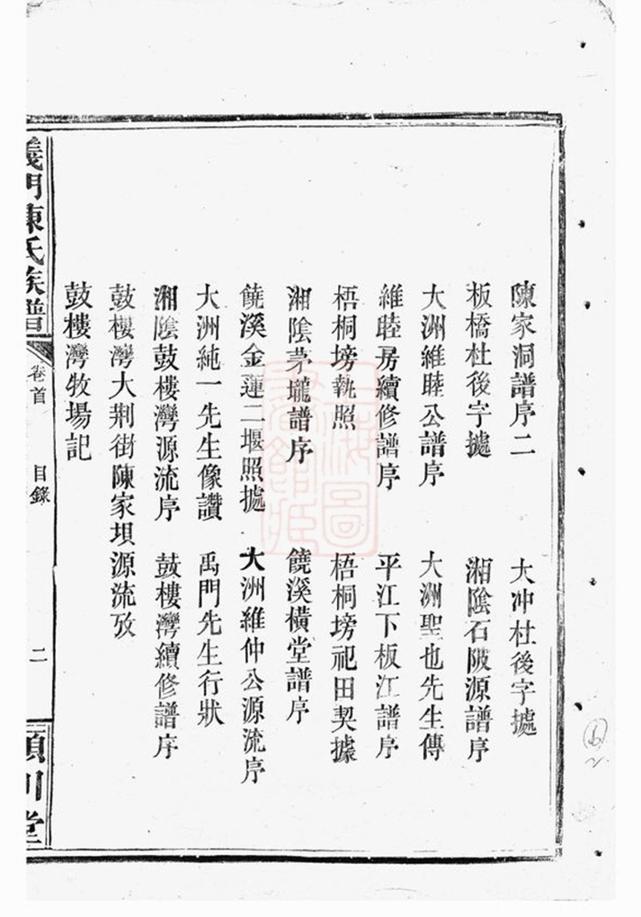 陳家洞譜序二 大冲杜後字㨿
板橋杜後字㨿 湘陰石陂源譜序
大洲維睦公譜序 大洲聖也先生傳
維睦房續修譜序 平江下板江譜序
梧桐塝執照 梧桐塝祀田契據
湘陰茅壠譜序 饒溪橫堂譜序
饒溪金蓮二堰照㨿 大洲維仲公源流序
大洲純一先生像讚 禹門先生行狀
湘陰鼓樓灣源流序 鼓樓灣續修譜序
鼓樓灣大荆街陳家垻源流攷
鼓樓灣牧場記
義門陳氏族譜 卷首 目錄 二 潁川堂